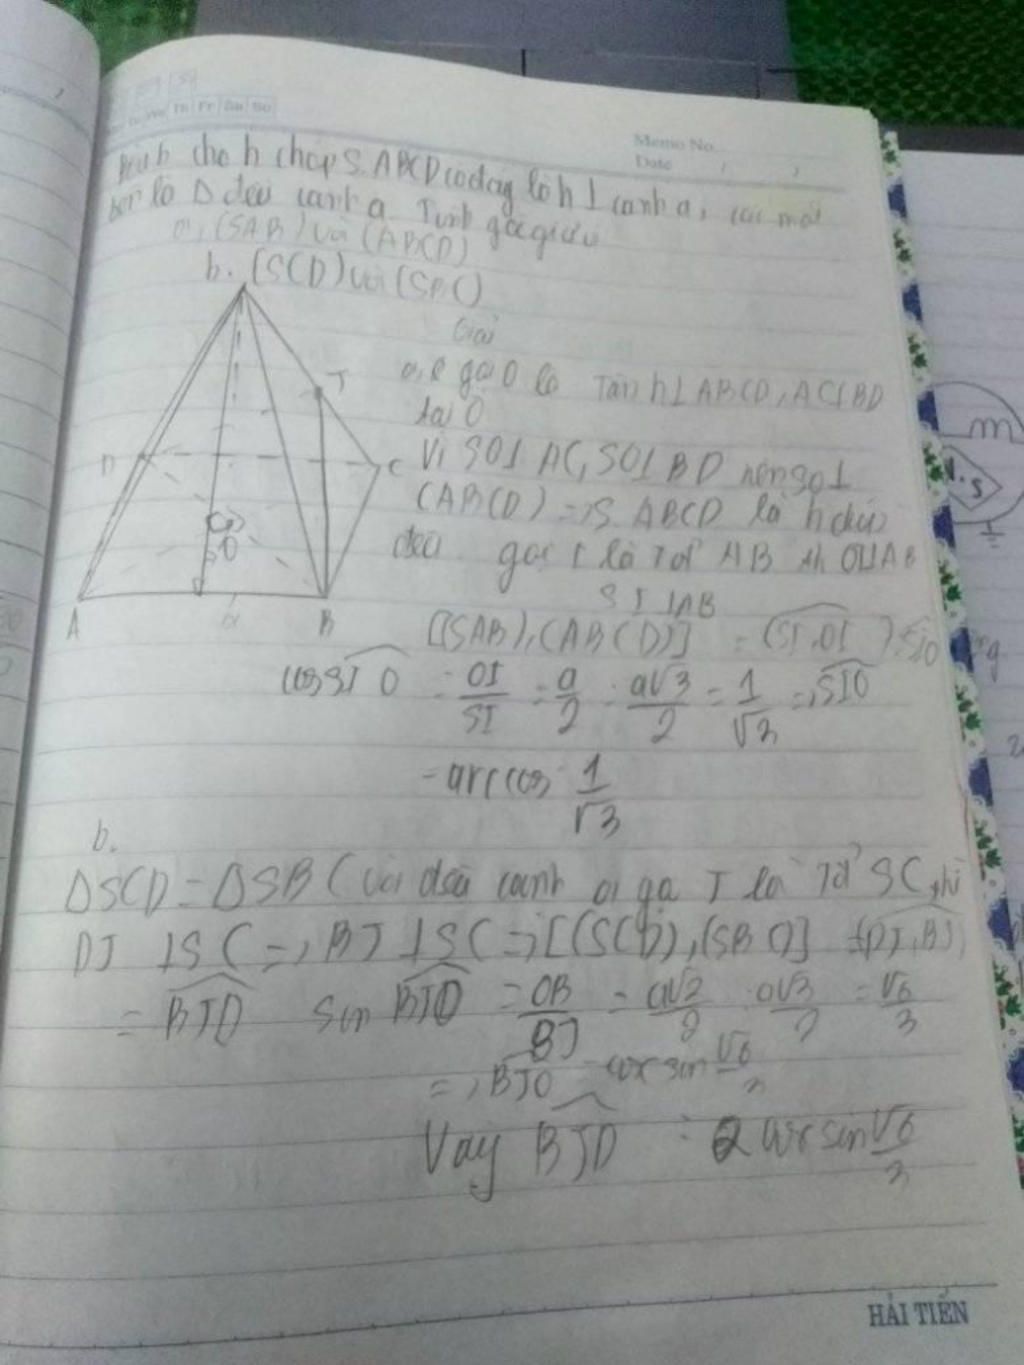 Mo Tu We Th Fr Sa Su
Memo No.
Date / /
cho h chóp S. ABCD có đáy là h⊥ cạnh a, các mặt
bên là Δ đều cạnh a. Tính góc giữa
a, (SAB) và (ABCD)
b. (SCD) và (SBC)
Giải
a, gọi O là Tâm h⊥ ABCD, AC⊥BD
tại O
Vì SO⊥ AC, SO⊥BD nên SO⊥
(ABCD) => S. ABCD là h chóp
đều gọi I là Tđ AB th OI⊥AB
SI⊥AB
[(SAB),(ABCD)] = (SI,OI) = SIO
cosSIO = OI/SI = a/2 : a√3/2 = 1/√3 =>, SIO
= arccos 1/√3
b.
ΔSCD = ΔSB( và đều cạnh a, gọi J là Tđ SC, thì
DJ ⊥SC =>, BJ ⊥SC =>, [(SCD),(SBC)] = (DJ,BJ)
= BJD sin BJO = OB/BJ = a√2/2 : a√3/2 = √6/3
=>, BJO = arcsin √6/3
Vay BJD = 2 arcsin √6/3
J
D
C
O
A
a
B
HẢI TIẾN
m